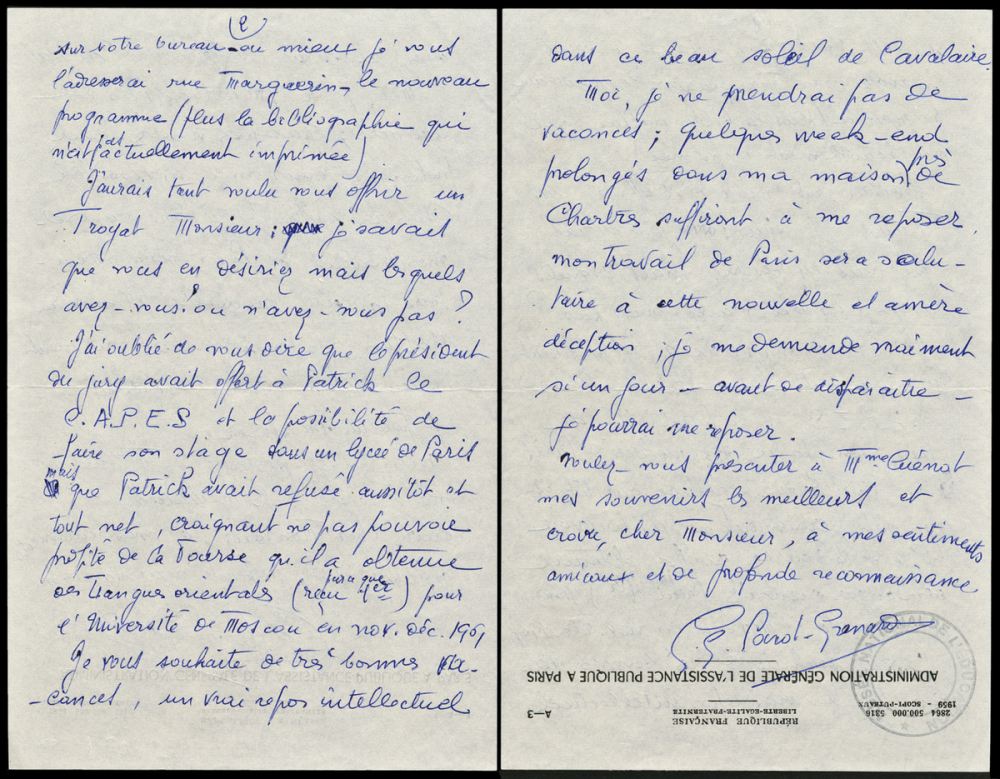 2
sur votre bureau - ou mieux je vous
l'adresserai rue Marguerin, le nouveau
programme (plus la bibliographie qui
n'est pas actuellement imprimée)
J'aurais tant voulu vous offrir un
Troyat Monsieur ; je savais
que vous en désiriez mais lesquels
avez-vous ? ou n'avez-vous pas ?
J'ai oublié de vous dire que le président
du jury avait offert à Patrick le
C.A.P.E.S et la possibilité de
faire son stage dans un lycée de Paris
mais que Patrick avait refusé aussitôt et
tout net, craignant ne pas pouvoir
profité de la Bourse qu'il a obtenue
des Langues orientales (reçu 1er) pour
l'Université de Moscou en nov. déc. 1961
Je vous souhaite de très bonnes va-
-cances, un vrai repos intellectuel
dans ce beau soleil de Cavalaire.
Moi, je ne prendrai pas de
vacances ; quelques week-end
prolongés dans ma maison près de
Chartres suffiront à me reposer.
mon travail de Paris sera salu-
taire à cette nouvelle et amère
déception ; je me demande vraiment
si un jour - avant de disparaître -
je pourrai me reposer.
Voulez-vous présenter à Mme Guénot
mes souvenirs les meilleurs et
croire, cher Monsieur, à mes sentiments
amicaux et de profonde reconnaissance
ADMINISTRATION GÉNÉRALE DE L'ASSISTANCE PUBLIQUE A PARIS
RÉPUBLIQUE FRANÇAISE
LIBERTÉ-ÉGALITÉ-FRATERNITÉ
A—3
2864 500.000 5316
1959 - SCOPI-PUTEAUX